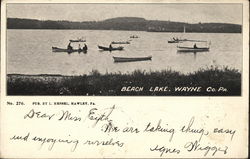 BEACH LAKE, WAYNE Co. PA.
No. 276. PUB. BY L. HENSEL, HAWLEY, PA.
Dear Miss
We are taking things easy
and enjoying ourselves.
Agnes